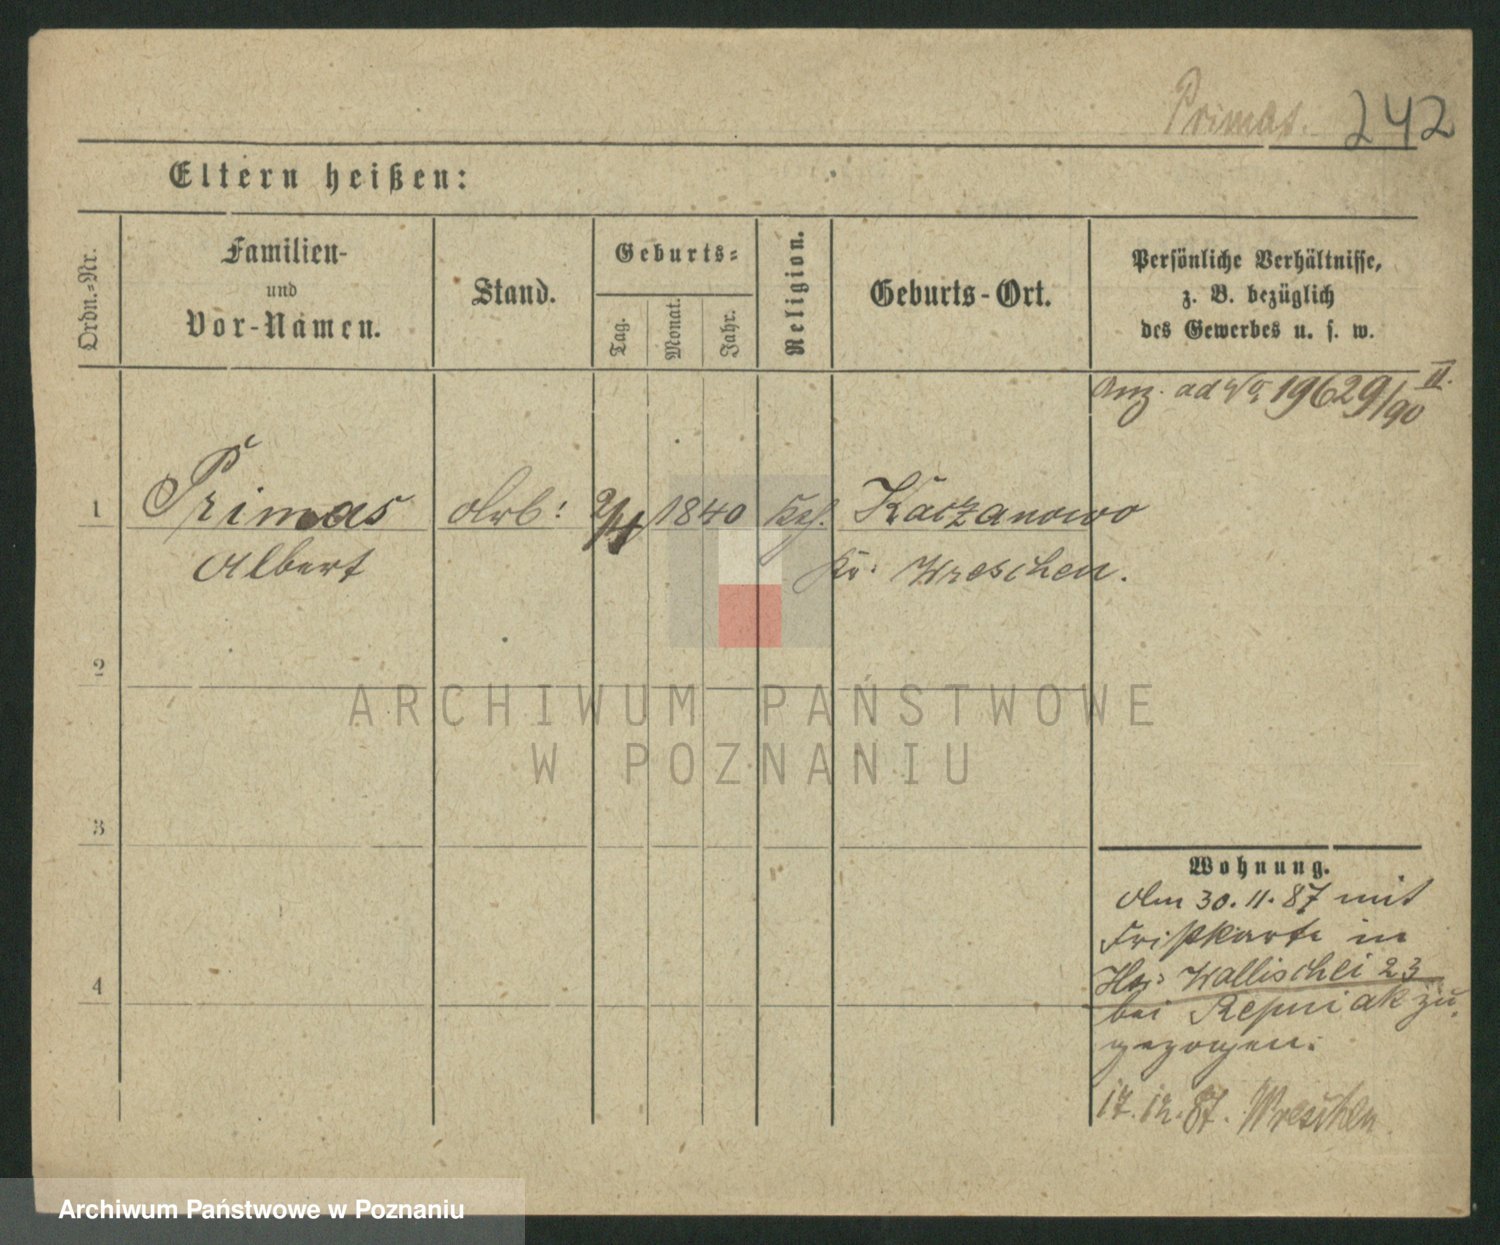 Primas. 242
Eltern heißen:
Ordn.-Nr.
Familien-
und
Vor-Namen.
Stand.
Geburts-
Tag.
Monat.
Jahr.
Religion.
Geburts-Ort.
Persönliche Verhältnisse,
z. B. bezüglich
des Gewerbes u. s. w.
ad 19629/90 II.
1 Primas Arb: 1840 Kath. Kaczanowo
Albert Kr: Wreschen.
2
3
4
Wohnung.
Am 30.11.87 mit
in
Wallischei 23
bei Repniak zu
gezogen.
17.12.87. Wreschen
ARCHIWUM PAŃSTWOWE
W POZNANIU
Archiwum Państwowe w Poznaniu